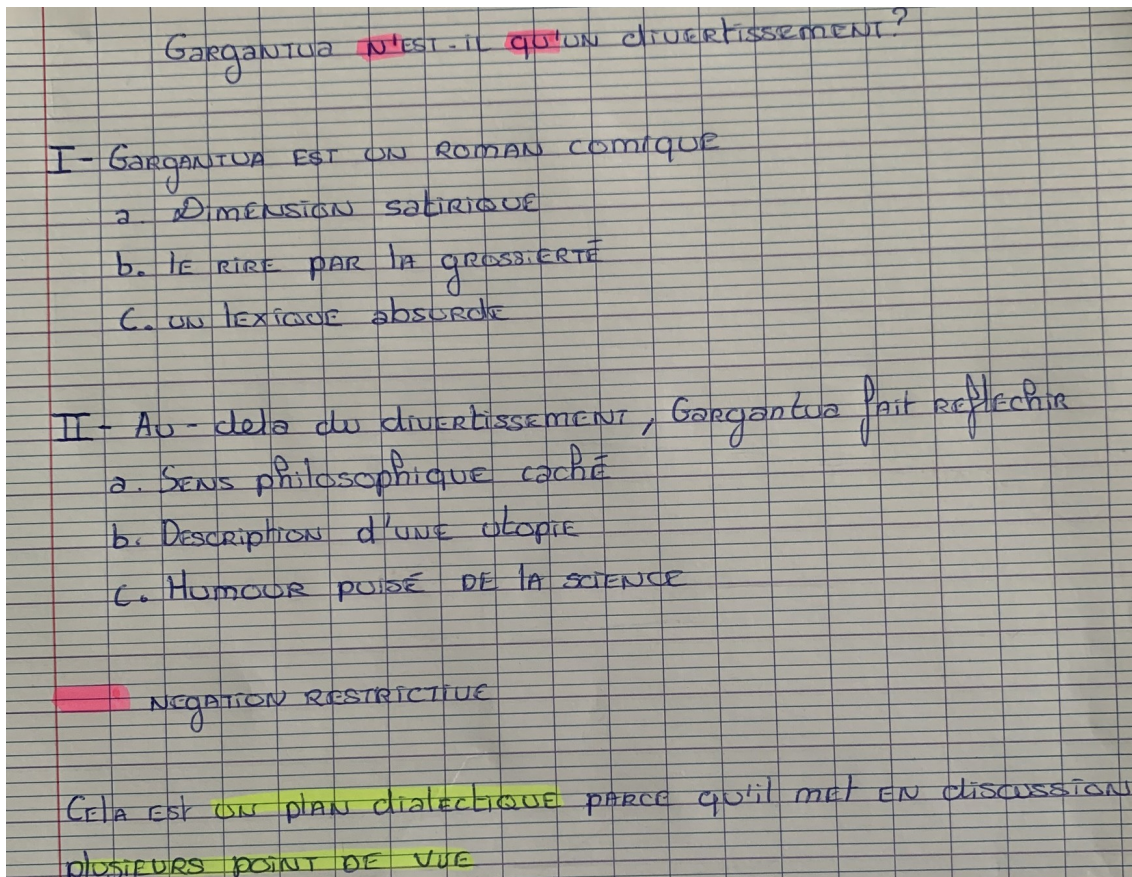 Gargantua n'est-il qu'un divertissement?
I- Gargantua est un roman comique
a. Dimension satirique
b. le rire par la grossierté
c. un lexique absurde
II- Au-dela du divertissement, Gargantua fait reflechir
a. Sens philosophique caché
b. Description d'une utopie
c. Humour puisé de la science
Negation restrictive
Cela est un plan dialectique parce qu'il met en discussion
plusieurs point de vue